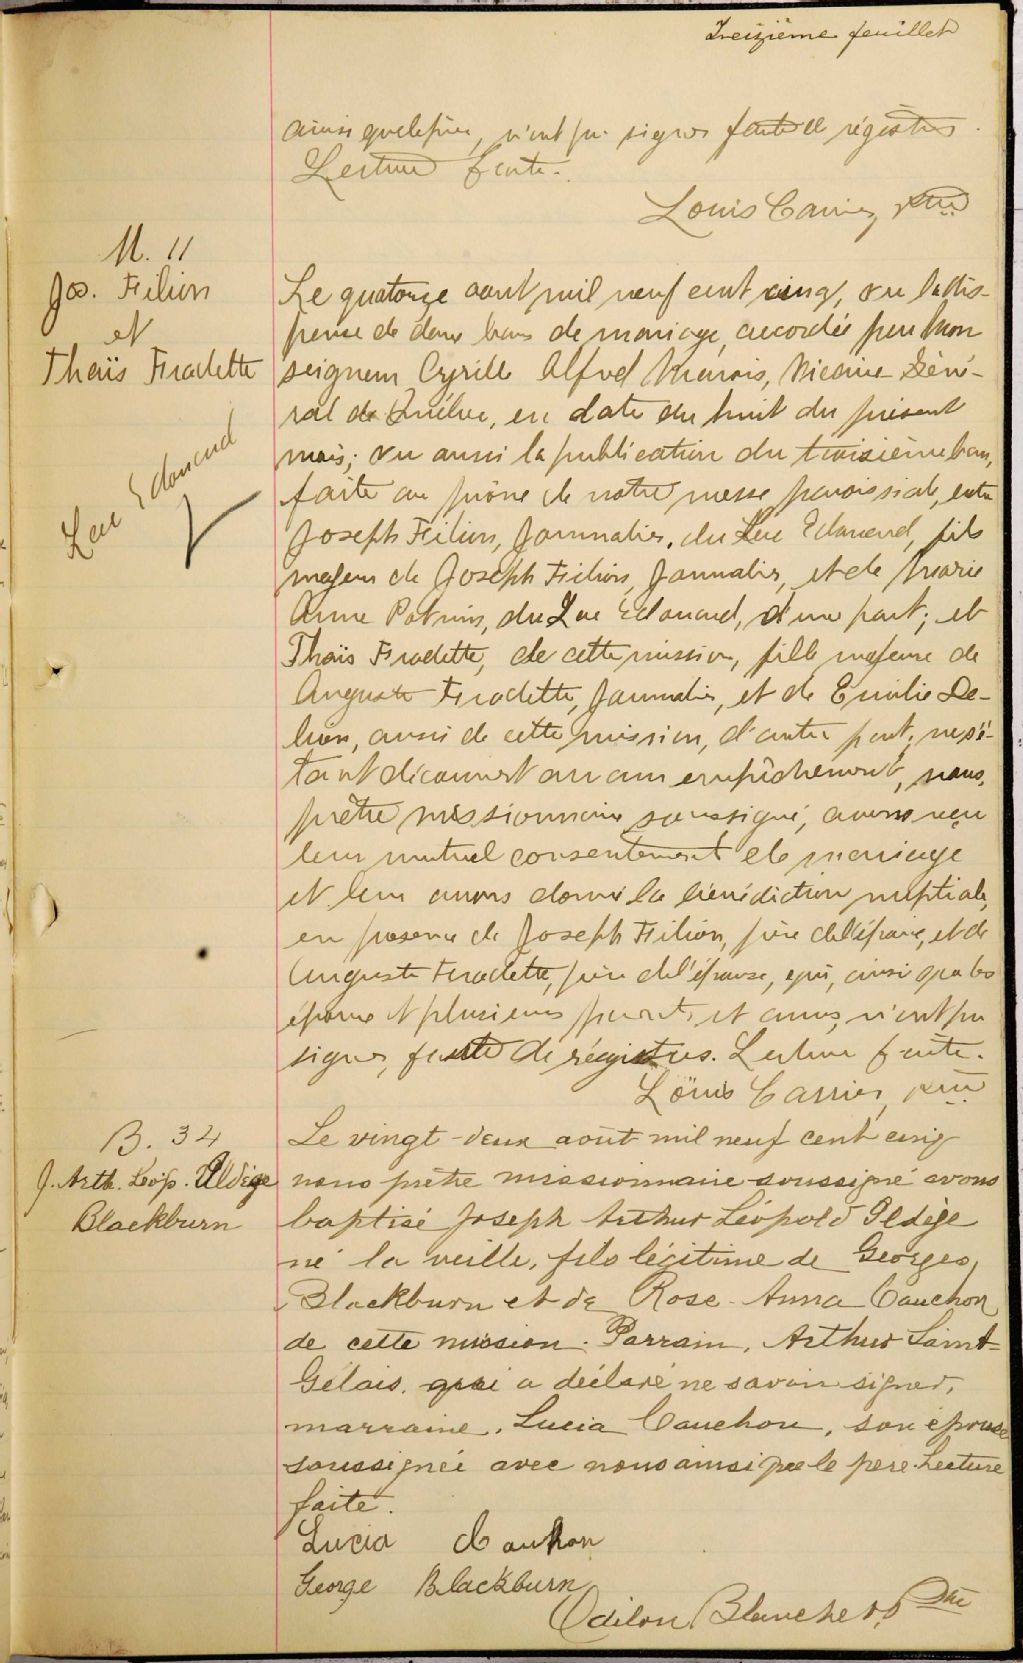 Treizième feuillet
ainsi que le père, n'ont pu signer faute de régistres.
Lecture faite.
Louis Carrier, ptre
M. 11
Jos. Filion
et
Thaïs Fradette
Lac Edouard
Le quatorze août mil neuf cent cinq, vu la dis-
pense de deux bans de mariage, accordée par Mon
seigneur Cyrille Alfred Marois, Vicaire Géné-
ral de Québec, en date du huit du présent
mois; vu aussi la publication du troisième ban,
faite au prône de notre messe paroissiale, entre
Joseph Filion, Journalier, du Lac Edouard, fils
majeur de Joseph Filion, Journalier, et de Marie
Anne Potvin, du Lac Edouard, d'une part; et
Thaïs Fradette, de cette mission, fille majeure de
Auguste Fradette, Journalier, et de Emilie De-
, aussi de cette mission, d'autre part; ne s'é-
tant découvert aucun empêchement, nous,
prêtre missionnaire soussigné, avons reçu
leur mutuel consentement de mariage
et leur avons donné la bénédiction nuptiale,
en présence de Joseph Filion, père de l'époux, et de
Auguste Fradette, père de l'épouse, qui, ainsi que les
époux et plusieurs parents et amis, n'ont pu
signer, faute de régistres. Lecture faite.
Louis Carrier, ptre
B. 34
J. Arth. Léop. Aldège
Blackburn
Le vingt-deux août mil neuf cent cinq
nous prêtre missionnaire soussigné avons
baptisé Joseph Arthur Léopold Aldège
né la veille, fils légitime de Georges
Blackburn et de Rose-Anna Cauchon
de cette mission. Parrain, Arthur Saint-
Gelais, qui a déclaré ne savoir signer,
marraine, Lucia Cauchon, son épouse
soussignée avec nous ainsi que le père. Lecture
faite.
Lucia Cauchon
George Blackburn
Odilon Blanchet, Ptre